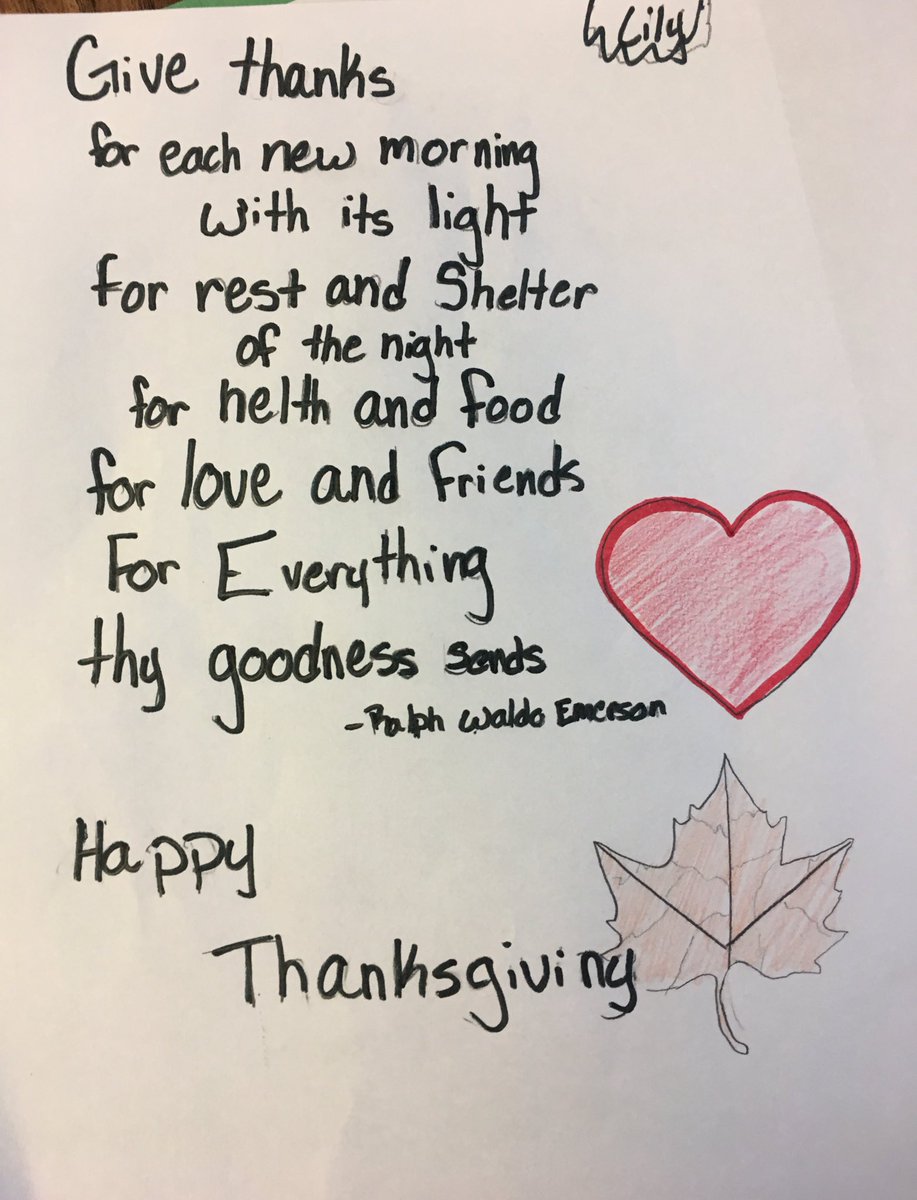 Give thanks
for each new morning
with its light
for rest and Shelter
of the night
for helth and food
for love and friends
For Everything
thy goodness sends
-Ralph Waldo Emerson
Happy
Thanksgiving